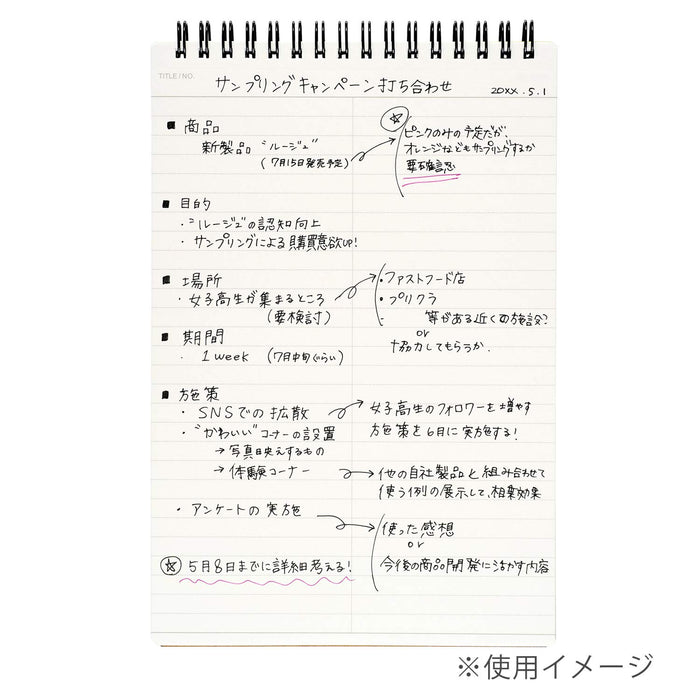 TITLE / NO.
サンプリングキャンペーン打ち合わせ
20XX.5.1
■ 商品
新製品 "ルージュ"
(7月15日発売予定)
☆
ピンクのみの予定だが、
オレンジなどもサンプリングするか
要確認
■ 目的
・"ルージュ"の認知向上
・サンプリングによる購買意欲UP!
■ 場所
・女子高生が集まるところ
(要検討)
・ファストフード店
・プリクラ
・ 等がある近くの施設?
or
協力してもらうか.
■ 期間
・1week (7月中旬ぐらい)
■ 施策
・SNSでの拡散
女子高生のフォロワーを増やす
施策を6月に実施する!
・"かわいい"コーナーの設置
→写真映えするもの
→体験コーナー
他の自社製品と組み合わせて
使う例の展示して、相乗効果
・アンケートの実施
使った感想
or
今後の商品開発に活かす内容
☆ 5月8日までに詳細考える!
※使用イメージ